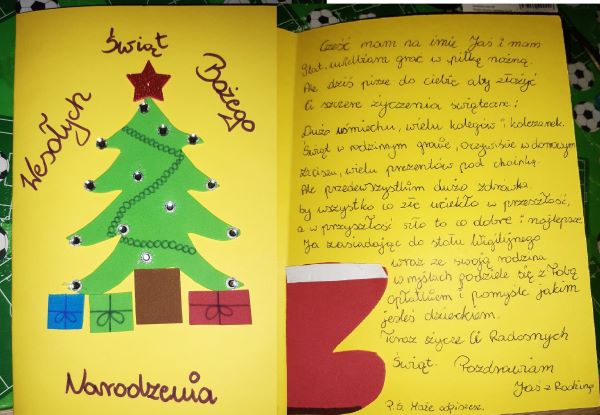 Wesołych
Świąt
Bożego
Narodzenia
Cześć mam na imię Jaś i mam
lat, uwielbiam grać w piłkę nożną.
Ale dziś piszę do ciebie aby złożyć
Ci szczere życzenia świąteczne:
Dużo uśmiechu, wielu kolegów i koleżanek.
Świąt w rodzinnym gronie, oczywiście w domowym
zaciszu, wielu prezentów pod choinką.
Ale przedewszystkim dużo zdrówka
by wszystko co złe uciekło w przeszłość,
a w przyszłość szło to co dobre i najlepsze
Ja zasiadając do stołu Wigilijnego
wraz ze swoją rodziną
w myślach podzielę się z Tobą
opłatkiem i pomyślę jakim
jesteś dzieckiem.
Teraz życzę Ci Radosnych
Świąt. Pozdrawiam
Jaś z Rodziną
P.S. Może odpiszesz.